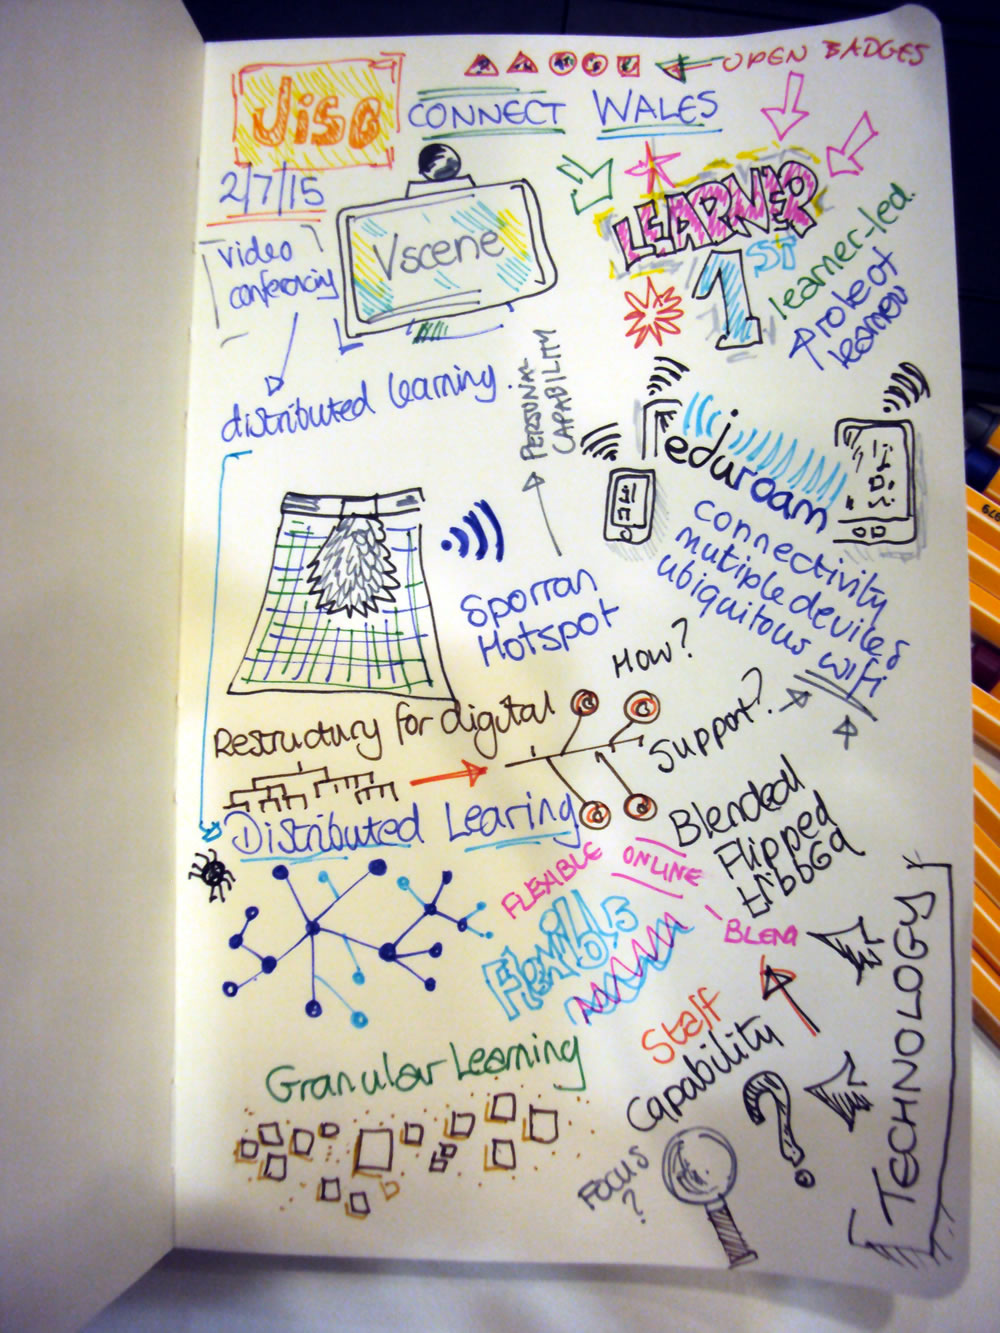 OPEN BADGES
Jisc
CONNECT WALES
2/7/15
video
conferencing
Vscene
LEARNER
1ST
learner-led.
Protect
learner
distributed learning.
PERSONAL
CAPABILITY
eduroam
connectivity
mutiple devices
ubiquitous wifi
Sporran
Hotspot
How?
Support?
Restructury for digital
Distributed Learing
Blended
Flipped
FLEXIBLE
ONLINE
BLEND
TECHNOLOGY
Staff
Capability
?
Granular Learning
Focus
?